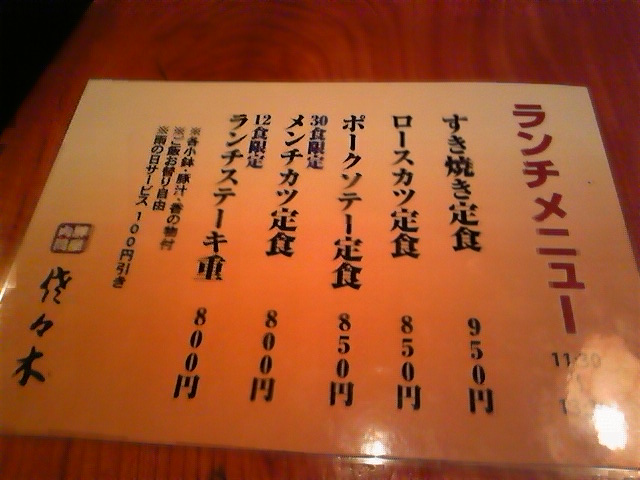 ランチメニュー
11:30
すき焼き定食 950円
ロースカツ定食 850円
ポークソテー定食 850円
30食限定
メンチカツ定食 800円
12食限定
ランチステーキ重 800円
※各小鉢・豚汁、香の物付
※ご飯お替り自由
※雨の日サービス100円引き
代々木